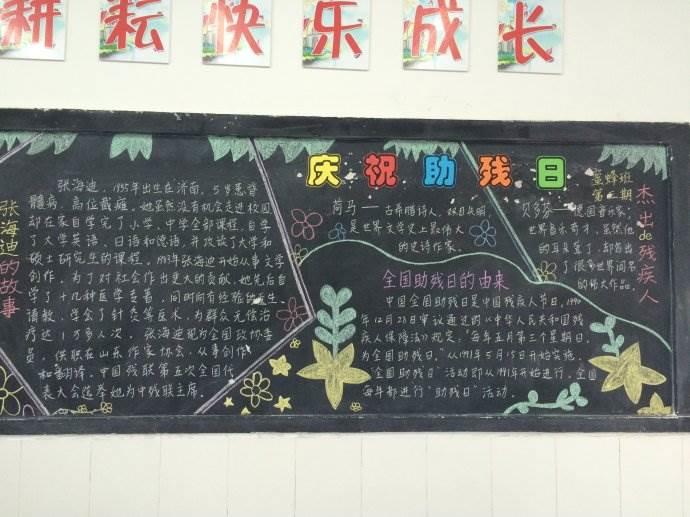 耕耘快乐成长
张海迪的故事
张海迪，1955年出生在济南，5岁患脊
髓病，高位截瘫。她虽然没有机会走进校园
却在家自学完了小学、中学全部课程，自学
了大学英语、日语和德语，并攻读了大学和
硕士研究生的课程。1983年张海迪开始从事文学
创作，为了对社会作出更大的贡献，她先后自
学了十几种医学专著，同时向有经验的医生
请教，学会了针灸等医术，为群众无偿治
疗达1万多人次。张海迪现为全国政协委
员，供职在山东作家协会，从事创作
和翻译。中国残联第五次全国代
表大会选举她为中残联主席。
庆祝助残日
蓝蜂班
第二期
杰出de残疾人
荷马——古希腊诗人，双目失明，
是世界文学史上最伟大
的史诗作家。
贝多芬——德国音乐家，
世界音乐奇才，虽然他
的耳朵聋了，却创作出
了很多世界闻名
的伟大作品。
全国助残日的由来
中国全国助残日是中国残疾人节日，1990
年12月28日审议通过的《中华人民共和国残
疾人保障法》规定："每年五月第三个星期日，
为全国助残日。"从1991年5月15日开始实施，
"全国助残日"活动即从1991年开始进行，全国
每年都进行"助残日"活动。